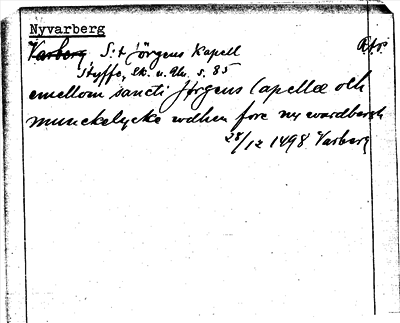 Nyvarberg
Varberg S:t Jörgens kapell
Styffe, Sk. u. Un. s. 85
emellom sancti Jørgens Capellæ och
munckelycke wdhen fore ny wardbergh
28/12 1498 Varberg